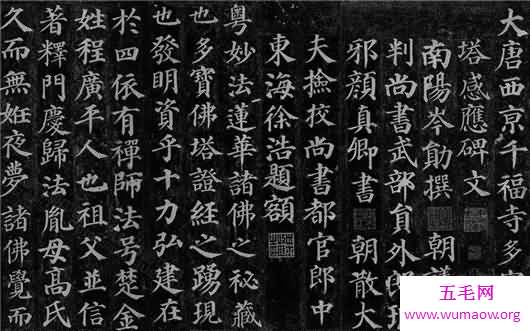 大唐西亰千福寺多
塔感應碑文
南陽岑勛撰 朝議
判尚書武部員外郎
邪顏真卿書 朝散大
夫撿挍尚書都官郎中
東海徐浩題額
粵妙法蓮華諸佛之秘藏
也多寶佛塔證經之踴現
也發明資乎十力弘建在
於四依有禪師法号楚金
姓程廣平人也祖父並信
著釋門慶歸法胤母高氏
久而無姙夜夢諸佛覺而
五毛网
www.wumaow.org